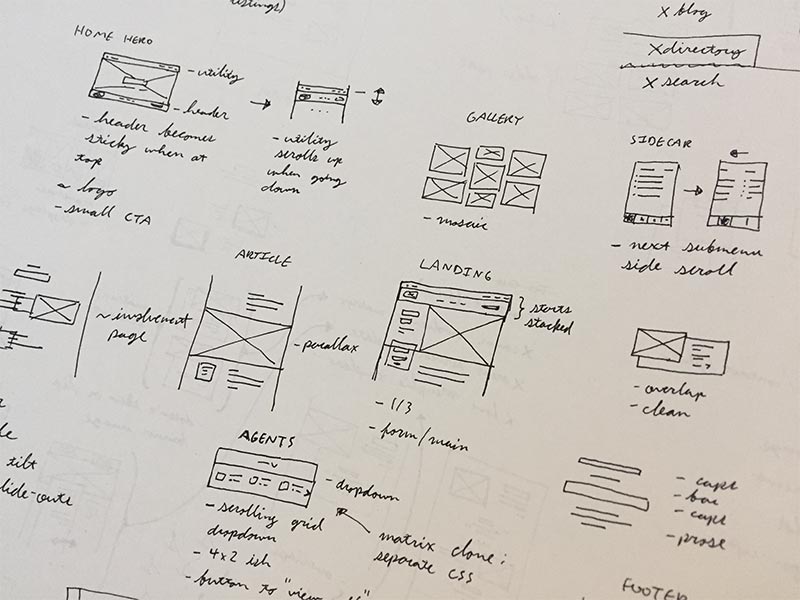 X blog
X directory
X search
HOME HERO
- utility
- header
- header becomes
sticky when at
top
~ logo
- small CTA
- utility
scrolls up
when going
down
GALLERY
- mosaic
SIDECAR
- next submenu
side scroll
~ involvement
page
ARTICLE
- parallax
LANDING
starts
stacked
- 1/3
- form/main
- overlap
- clean
tilt
AGENTS
- dropdown
- scrolling grid
dropdown
- 4x2 ish
- button to "view
matrix clone:
separate CSS
- capt
- bar
- capt
- prose
FOOTER